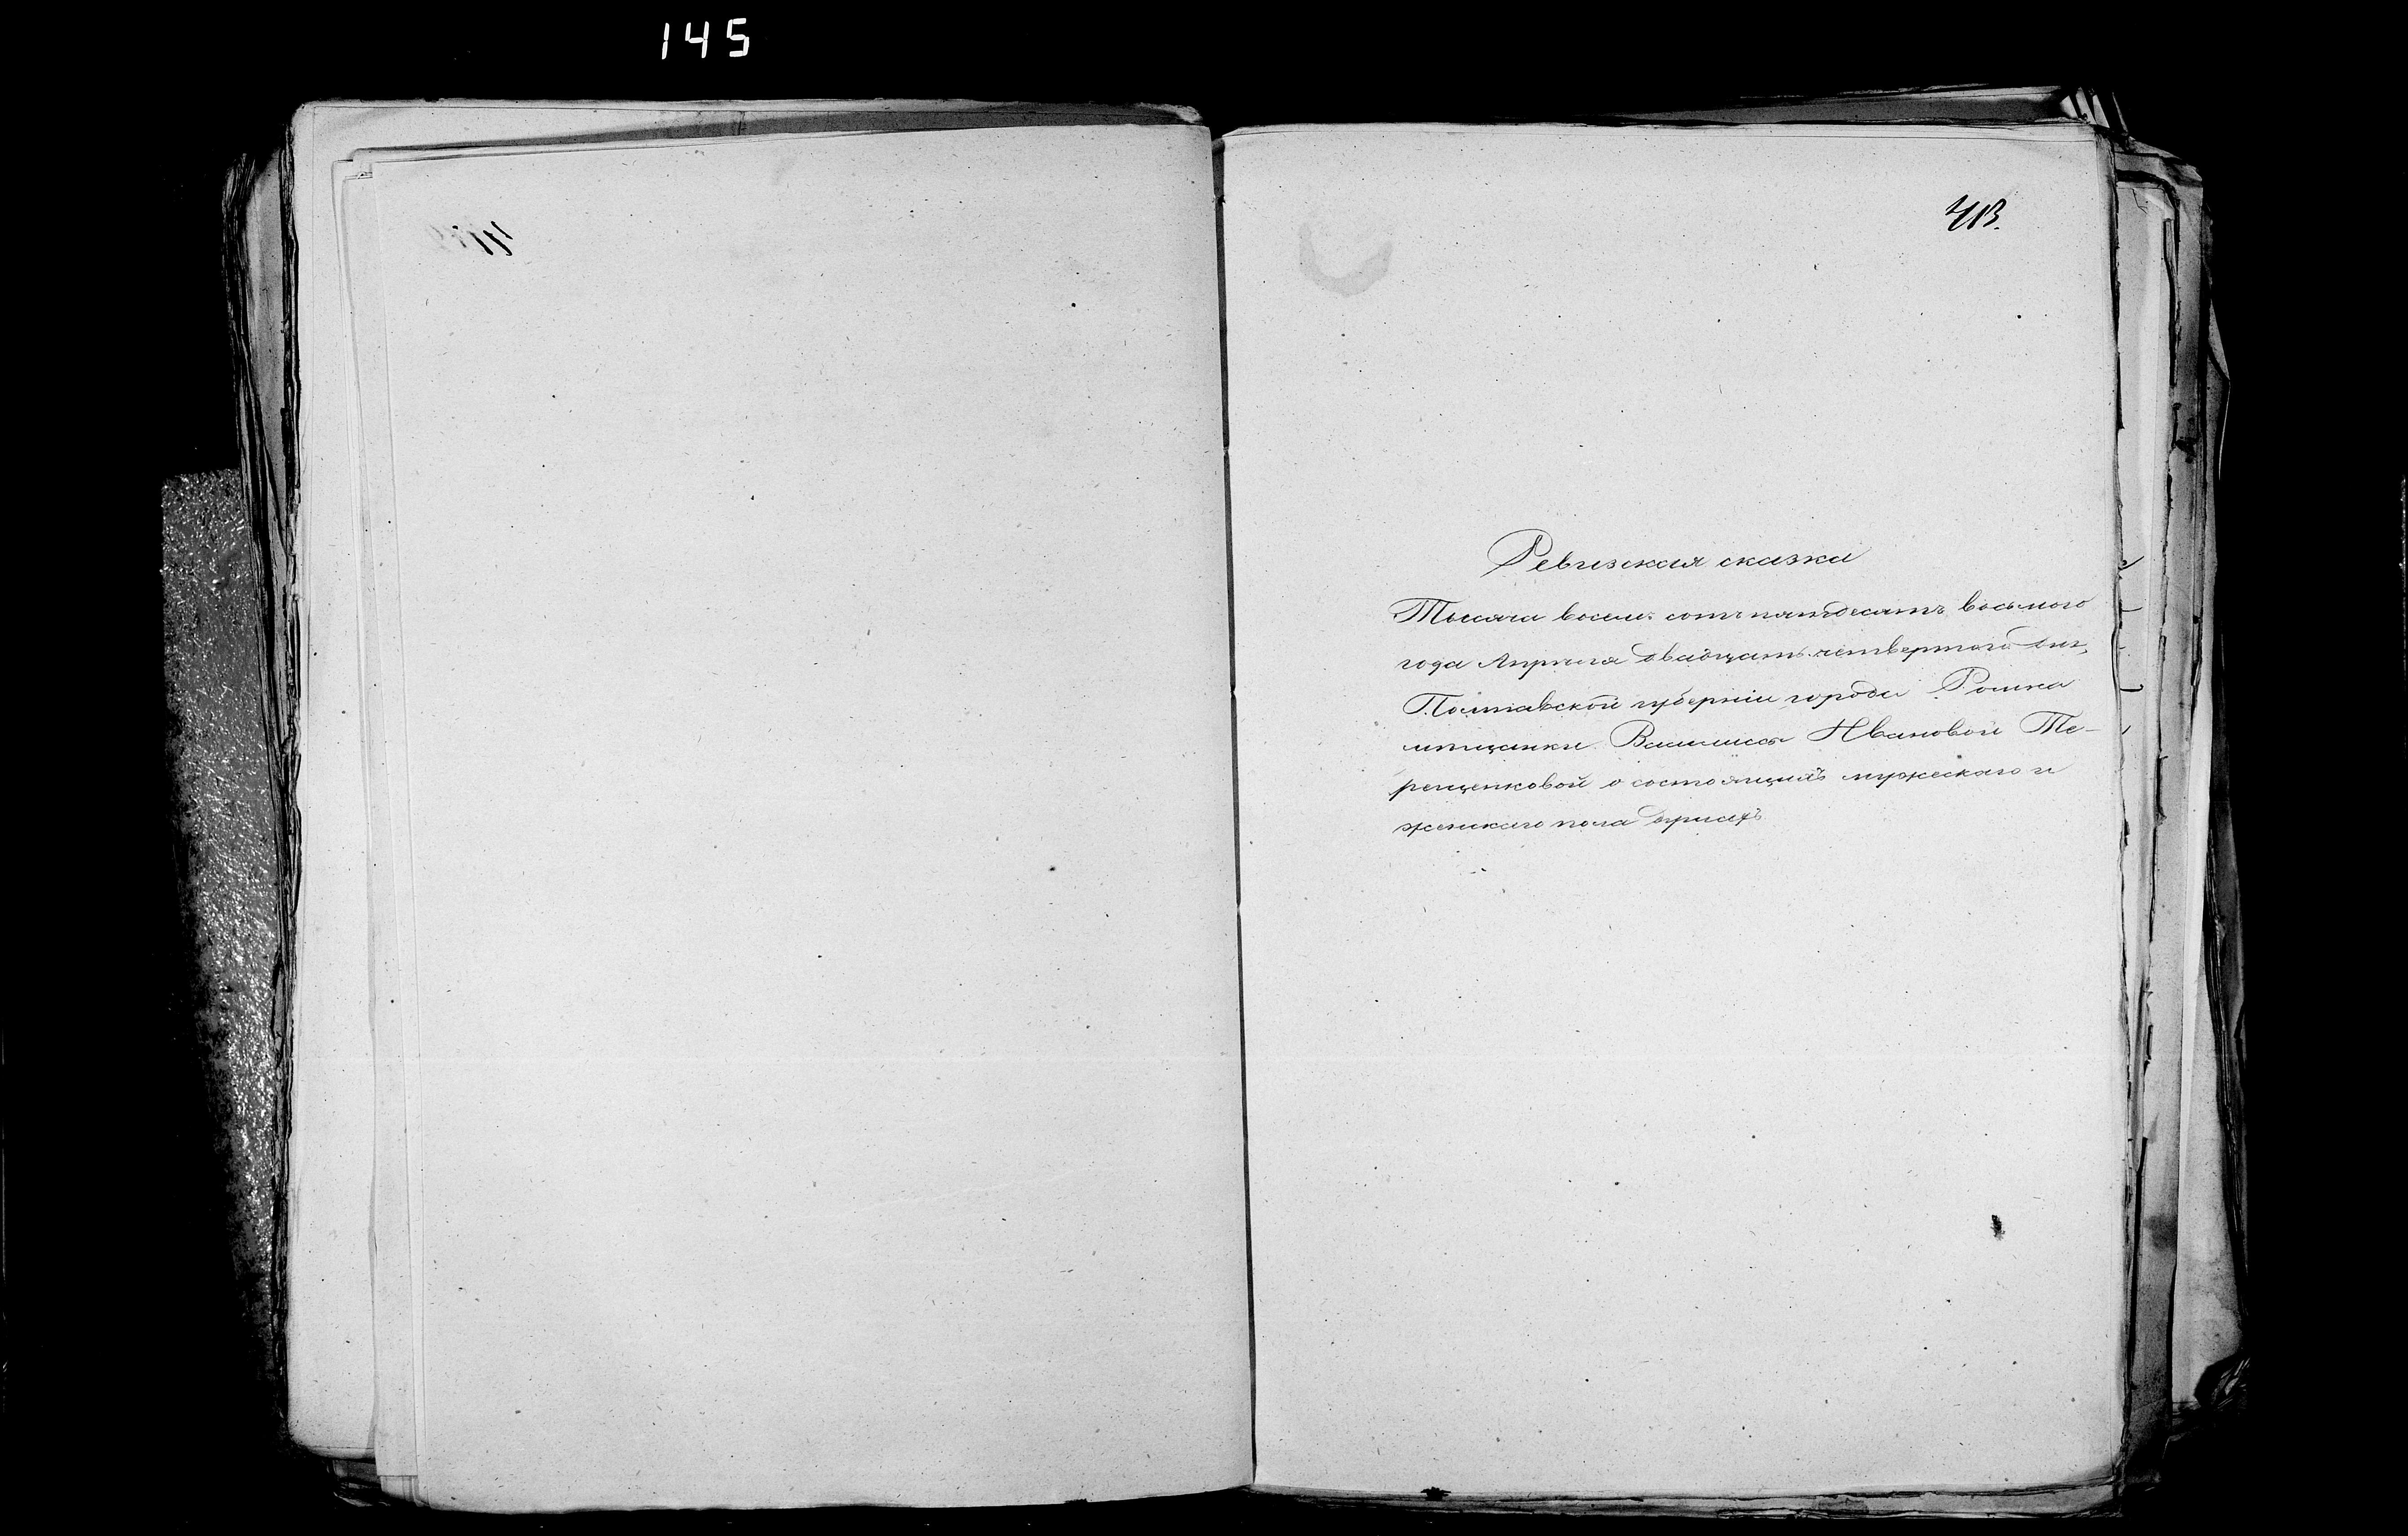 145
413.
Ревизская сказка
Тысяча восемь сотъ пятдесятъ восьмого
года Апреля двадцать четвертого дня,
Полтавской губерніи города Ромна
мѣщанки Василисы Ивановой Те-
рещенковой о состоящихъ мужескаго и
женскаго пола душахъ